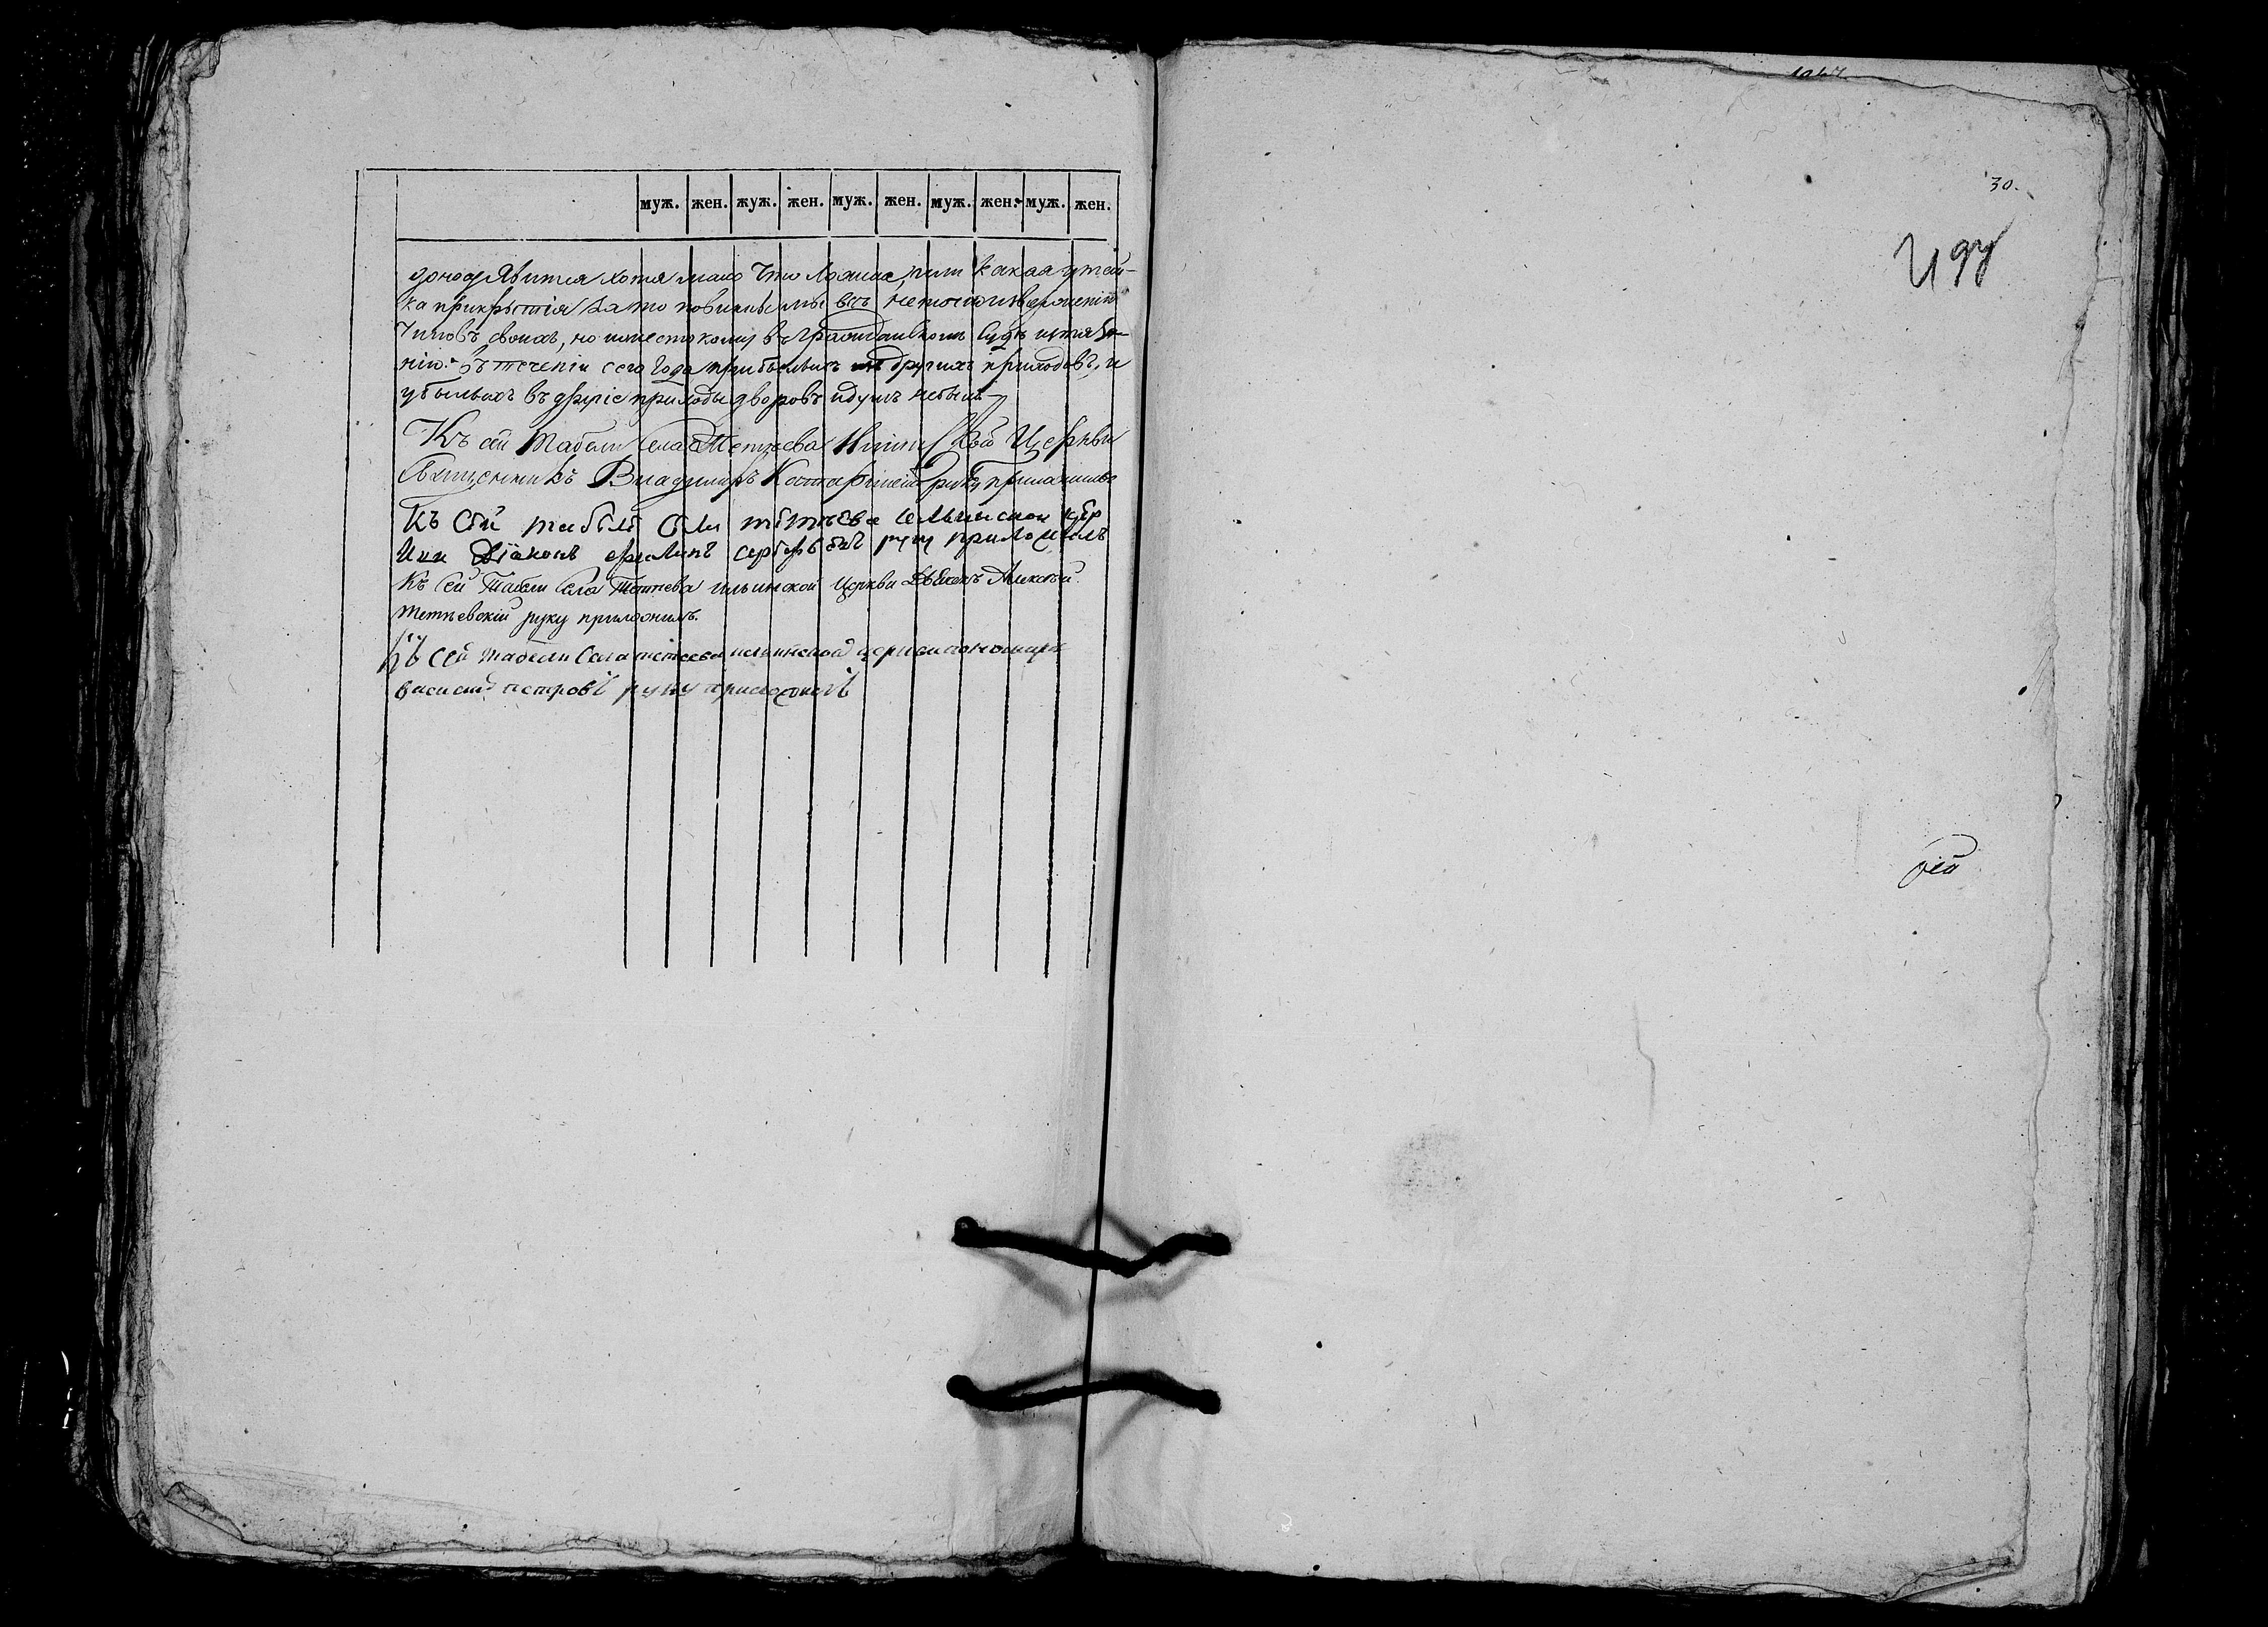 1047
30.
муж. жен. жуж. жен. муж. жен. муж. жен. муж. жен.
явится хотя мало что ложное, или какая утай-
ка прикрытія, за то повинны мы всѣ не токмо изверженію
чиновъ своихъ, но и жестокому въ гражданскомъ судѣ истяза-
нію. Въ теченіи сего года прибылыхъ изъ другихъ приходовъ, и
убылыхъ въ другіе приходы дворовъ и душъ небыло
Къ сей Табели села Тетѣева Ильинской Церкви
Священникъ Владимиръ руку приложилъ
Къ сей табели села тетѣева ильинской цер
кви Діаконъ филипъ руку приложилъ
Къ сей Табели села Тетѣева ильинской церкви Дьячекъ Алексѣй
Тетѣевскій руку приложилъ.
Къ сей табели села тетеева ильинской церкви пономарь
василий петровъ руку приложилъ